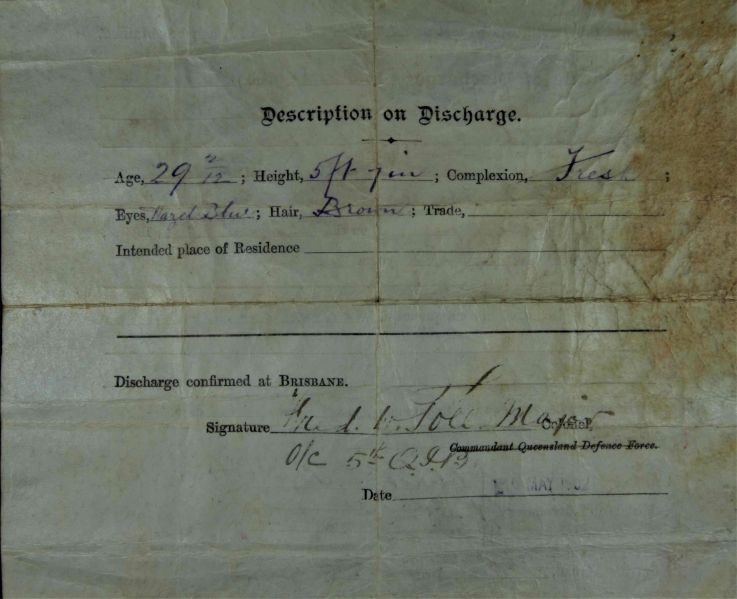 Description on Discharge.
Age, 29 /12 ; Height, 5ft 7in ; Complexion, Fresh ;
Eyes, Hazel Blue ; Hair, Brown ; Trade,
Intended place of Residence
Discharge confirmed at BRISBANE.
Signature Toll Major Colonel,
O/C 5th Q.I.B Commandant Queensland Defence Force.
Date MAY 1902